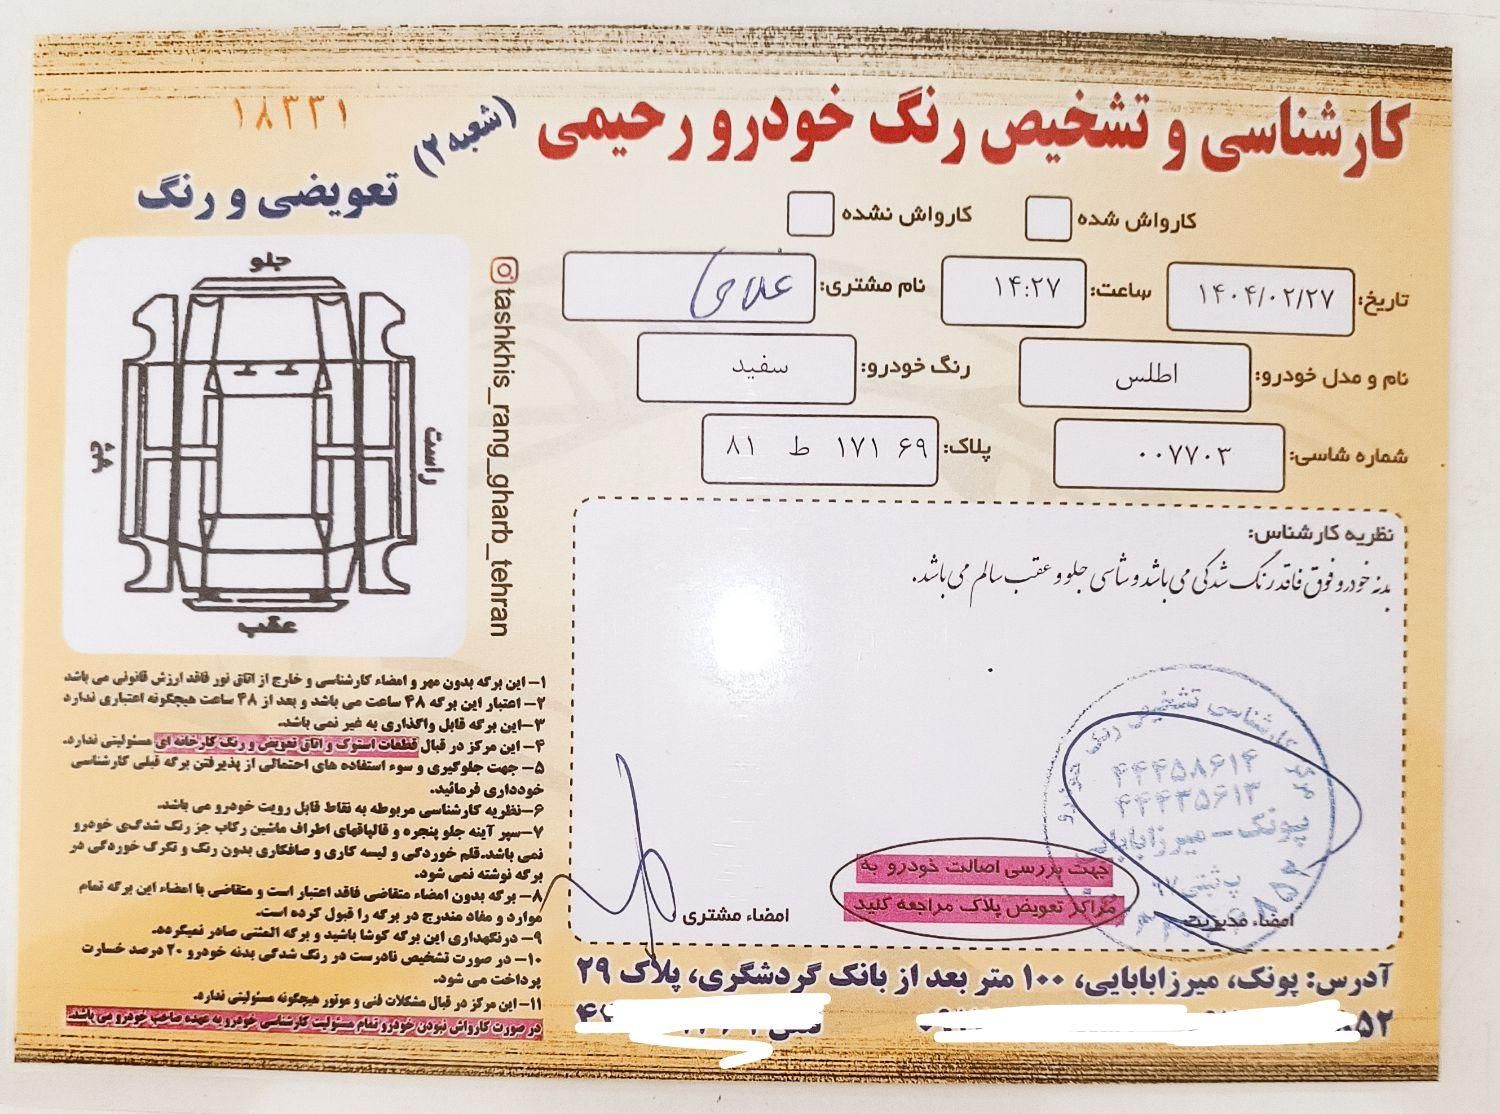 کارشناسی و تشخیص رنگ خودرو رحیمی (شعبه ۲)
۱۸۳۳۱
تعویضی و رنگ
کارواش شده
کارواش نشده
تاریخ: ۱۴۰۴/۰۲/۲۷
ساعت: ۱۴:۲۷
نام مشتری:
نام و مدل خودرو: اطلس
رنگ خودرو: سفید
شماره شاسی: ۰۰۷۷۰۳
پلاک: ۶۹ ۱۷۱ ط ۸۱
جلو
راست
چپ
عقب
tashkhis_rang_gharb_tehran
نظریه کارشناس:
بدنه خودرو فوق فاقد رنگ شدگی می باشد و شاسی جلو و عقب سالم می باشد.
۱- این برگه بدون مهر و امضاء کارشناسی و خارج از اتاق نور فاقد ارزش قانونی می باشد
۲- اعتبار این برگه ۴۸ ساعت می باشد و بعد از ۴۸ ساعت هیچگونه اعتباری ندارد
۳-این برگه قابل واگذاری به غیر نمی باشد.
۴- این مرکز در قبال قطعات استوک و اتاق تعویض و رنگ کارخانه ای مسئولیتی ندارد.
۵- جهت جلوگیری و سوء استفاده های احتمالی از پذیرفتن برگه قبلی کارشناسی
خودداری فرمائید.
۶-نظریه کارشناسی مربوطه به نقاط قابل رویت خودرو می باشد.
۷-سپر آینه جلو پنجره و قالپاقهای اطراف ماشین رکاب جز رنگ شدگی خودرو
نمی باشد.قلم خوردگی و لیسه کاری و صافکاری بدون رنگ و تگرگ خوردگی در
برگه نوشته نمی شود.
۸- برگه بدون امضاء متقاضی فاقد اعتبار است و متقاضی با امضاء این برگه تمام
موارد و مفاد مندرج در برگه را قبول کرده است.
۹- درنگهداری این برگه کوشا باشید و برگه المثنی صادر نمیگردد.
۱۰- در صورت تشخیص نادرست در رنگ شدگی بدنه خودرو ۲۰ درصد خسارت
پرداخت می شود.
۱۱- این مرکز در قبال مشکلات فنی و موتور هیچگونه مسئولیتی ندارد.
در صورت کارواش نبودن خودرو تمام مسئولیت کارشناسی خودرو به عهده صاحب خودرو می باشد.
مرکز کارشناسی تشخیص رنگ خودرو
۴۴۴۵۸۶۱۴
۴۴۴۳۵۶۱۳
پونک - میرزابابایی
جهت بررسی اصالت خودرو به
مراکز تعویض پلاک مراجعه کنید
امضاء مدیریت
امضاء مشتری
آدرس: پونک، میرزابابایی، ۱۰۰ متر بعد از بانک گردشگری، پلاک ۲۹